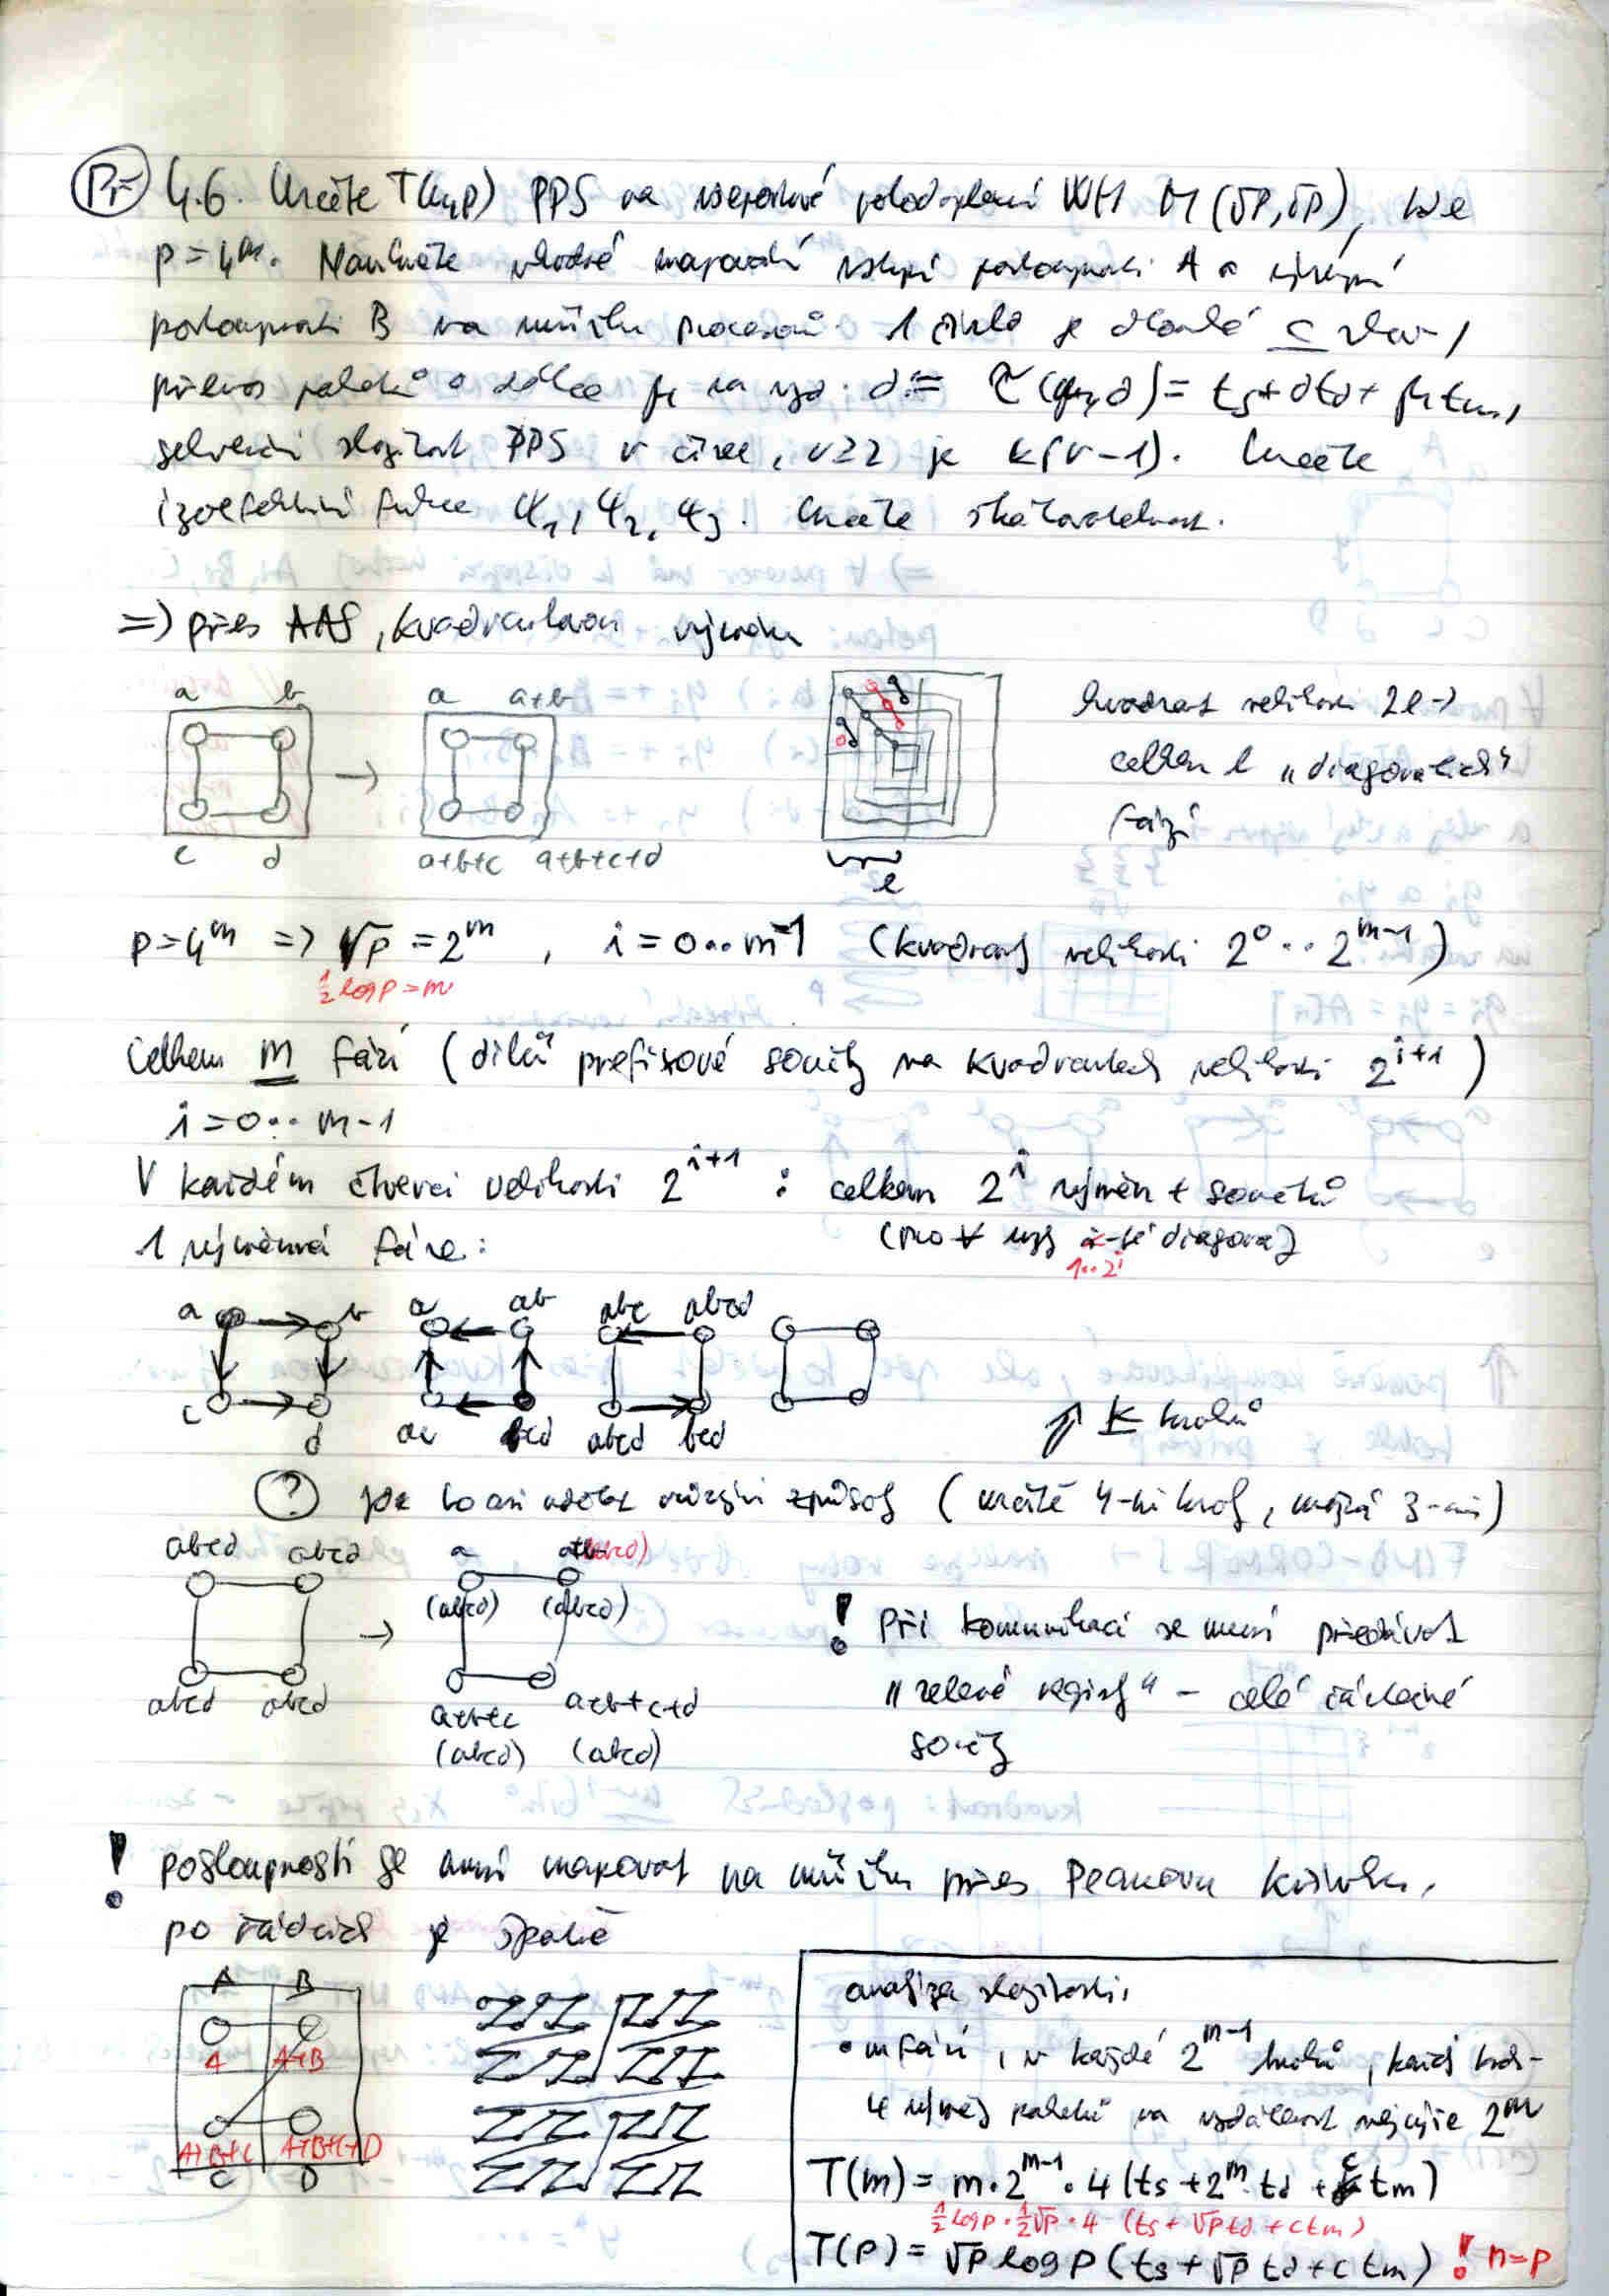 Př 4.6. Určete T(n,p) PPS na všeportové poloduplexní WH M(√p,√p), kde
p=4^m. Navrhněte vhodné mapování vstupní posloupnosti A a výstupní
posloupnosti B na mřížku procesorů. 1 číslo je dlouhé c slov,
přenos paketů o délce μ na vzd. d = τ(μ,d) = ts + dtd + μtm,
sekvenční složitost PPS v čísel, v≥2 je k(v-1). Určete
izoefektivní funkce ψ1, ψ2, ψ3. Určete škálovatelnost.
=) přes AAS, kvadrantovou výměnu
a b
c d
→
a a+b
a+b+c a+b+c+d
l
kvadrant velikosti 2l →
celkem l „diagonálních“
fází
p=4^m => √p = 2^m , i=0..m-1 (kvadranty velikosti 2^0 .. 2^m-1)
½ log p = m
Celkem m fází (dílčí prefixové součty na kvadrantech velikosti 2^i+1)
i=0.. m-1
V každém čtverci velikosti 2^i+1 : celkem 2^i výměn + součtů
1 výměnná fáze:
(pro ∀ uzly i-té diagonály)
1..2^i
a b
c d
a ab
ac bcd
abc abcd
abcd bcd
↑ k kroků
? jde to asi udělat různými způsoby (určitě 4-mi kroky, možná 3-mi)
abcd abcd
abcd abcd
→
a a+b (abcd)
(abcd) (abcd)
a+b+c a+b+c+d
(abcd) (abcd)
! Při komunikaci se musí předávat
„zelené registry“ – celé částečné
součty
! posloupnosti se musí mapovat na mřížku přes Peanovu křivku,
po řádcích je špatně
A B
A A+B
A+B+C A+B+C+D
C D
analýza složitosti:
• m fází, v každé 2^m-1 kroků, každý krok-
4 výměny paketů na vzdálenost nejvýše 2^m
T(m) = m·2^m-1·4 (ts + 2^m·td + c tm)
½ log p · ½√p · 4 (ts + √p td + ctm)
T(p) = √p log p (ts + √p td + c tm) ! n=p